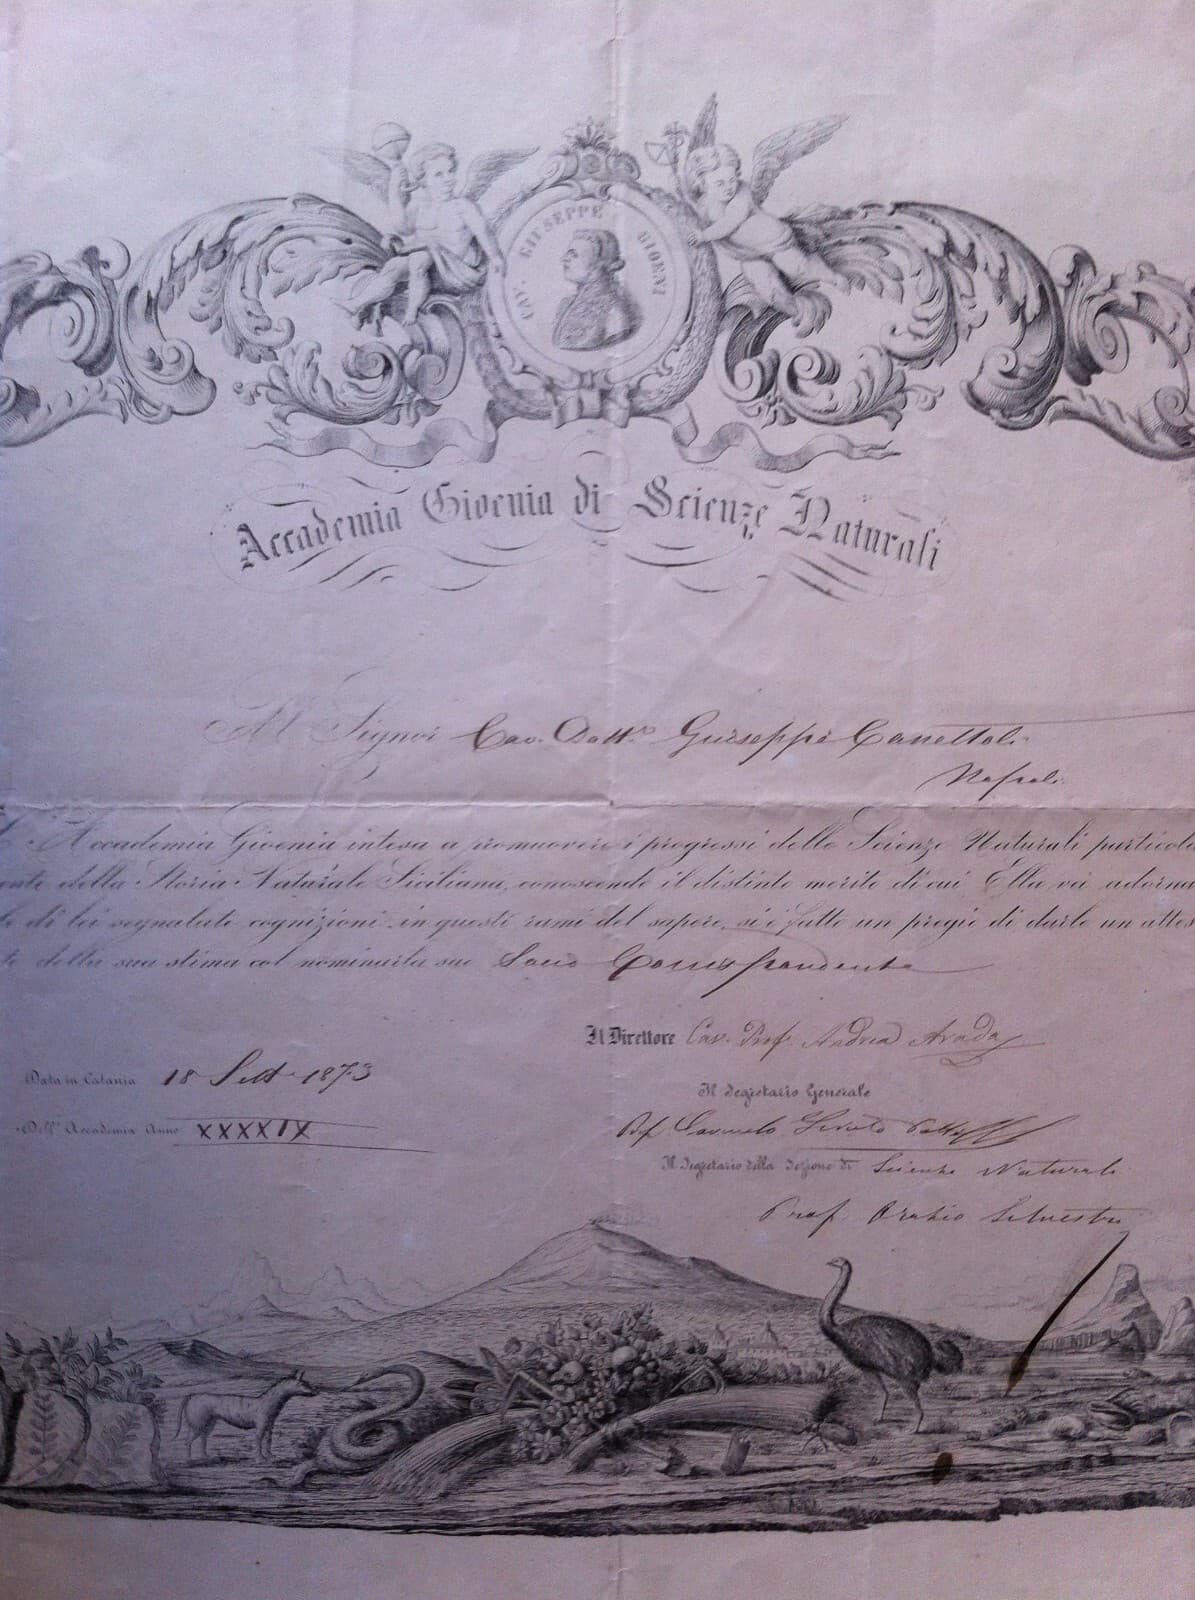 CAV. GIUSEPPE GIOENI
Accademia Gioenia di Scienze Naturali
Al Signor Cav. Dott.r Giuseppe Canettoli
Napoli
Accademia Gioenia intesa a promuovere i progressi delle Scienze Naturali particola
ente della Storia Naturale Siciliana, conoscendo il distinto merito di cui Ella va adorna
e di lei segnalate cognizioni in questi rami del sapere, si è fatto un pregio di darle un attes
to della sua stima col nominarla suo Socio Corrispondente
Il Direttore Cav. Prof. Andrea Aradas
Data in Catania 18 Sett. 1873
Il Segretario Generale
Dell' Accademia Anno XXXXIX
Prof Carmelo Sciuto Patti
Il Segretario della Sezione di Scienze Naturali
Prof. Orazio Silvestri